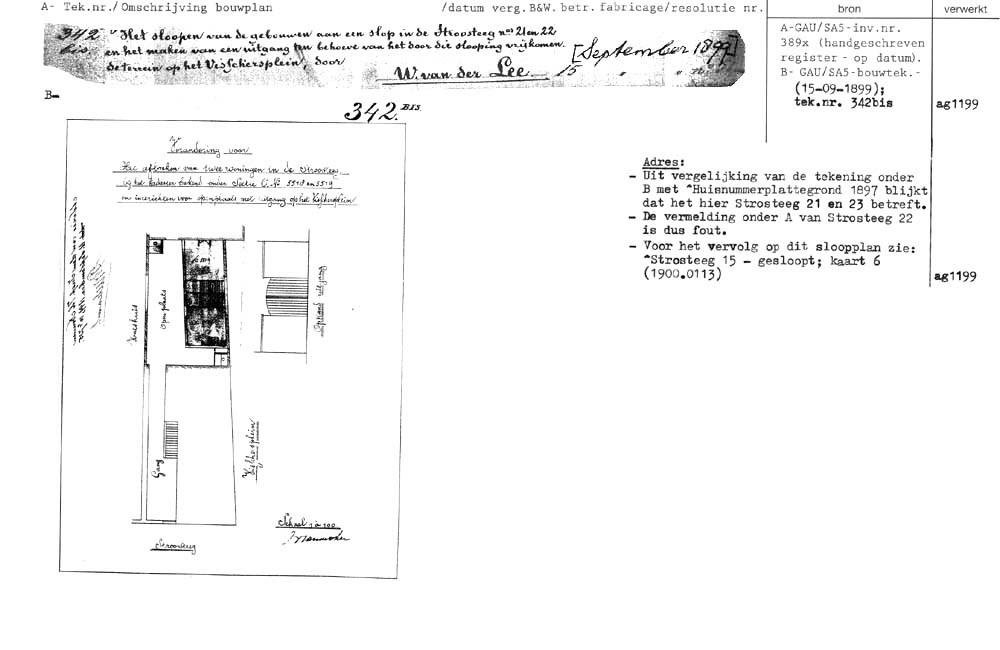 A- Tek.nr./Omschrijving bouwplan /datum verg.B&W.betr.fabricage/resolutie nr. bron verwerkt
342 bis "Het sloopen van de gebouwen aan een slop in de Strosteeg nos 21 en 22
en het maken van een uitgang ten behoeve van het door die slooping vrijkomen.
de terrein op het Visschersplein, door
W. van der Lee
15 [September 1899]
A-GAU/SA5-inv.nr.
389x (handgeschreven
register - op datum).
B- GAU/SA5-bouwtek.-
(15-09-1899);
tek.nr. 342bis ag1199
B-
342.BIS.
Verandering voor
Het afbreken van twee woningen in de Stroosteeg
bij het Kadaster bekend onder Sectie C. No 5518 en 5519
en inrichten voor openplaats met uitgang op het Visschersplein
Open plaats
Gang
Opstand uitgang
Visschersplein
Stroosteeg
Schaal 1 à 100
Adres:
- Uit vergelijking van de tekening onder
B met *Huisnummerplattegrond 1897 blijkt
dat het hier Strosteeg 21 en 23 betreft.
- De vermelding onder A van Strosteeg 22
is dus fout.
- Voor het vervolg op dit sloopplan zie:
*Strosteeg 15 - gesloopt; kaart 6
(1900.0113) ag1199